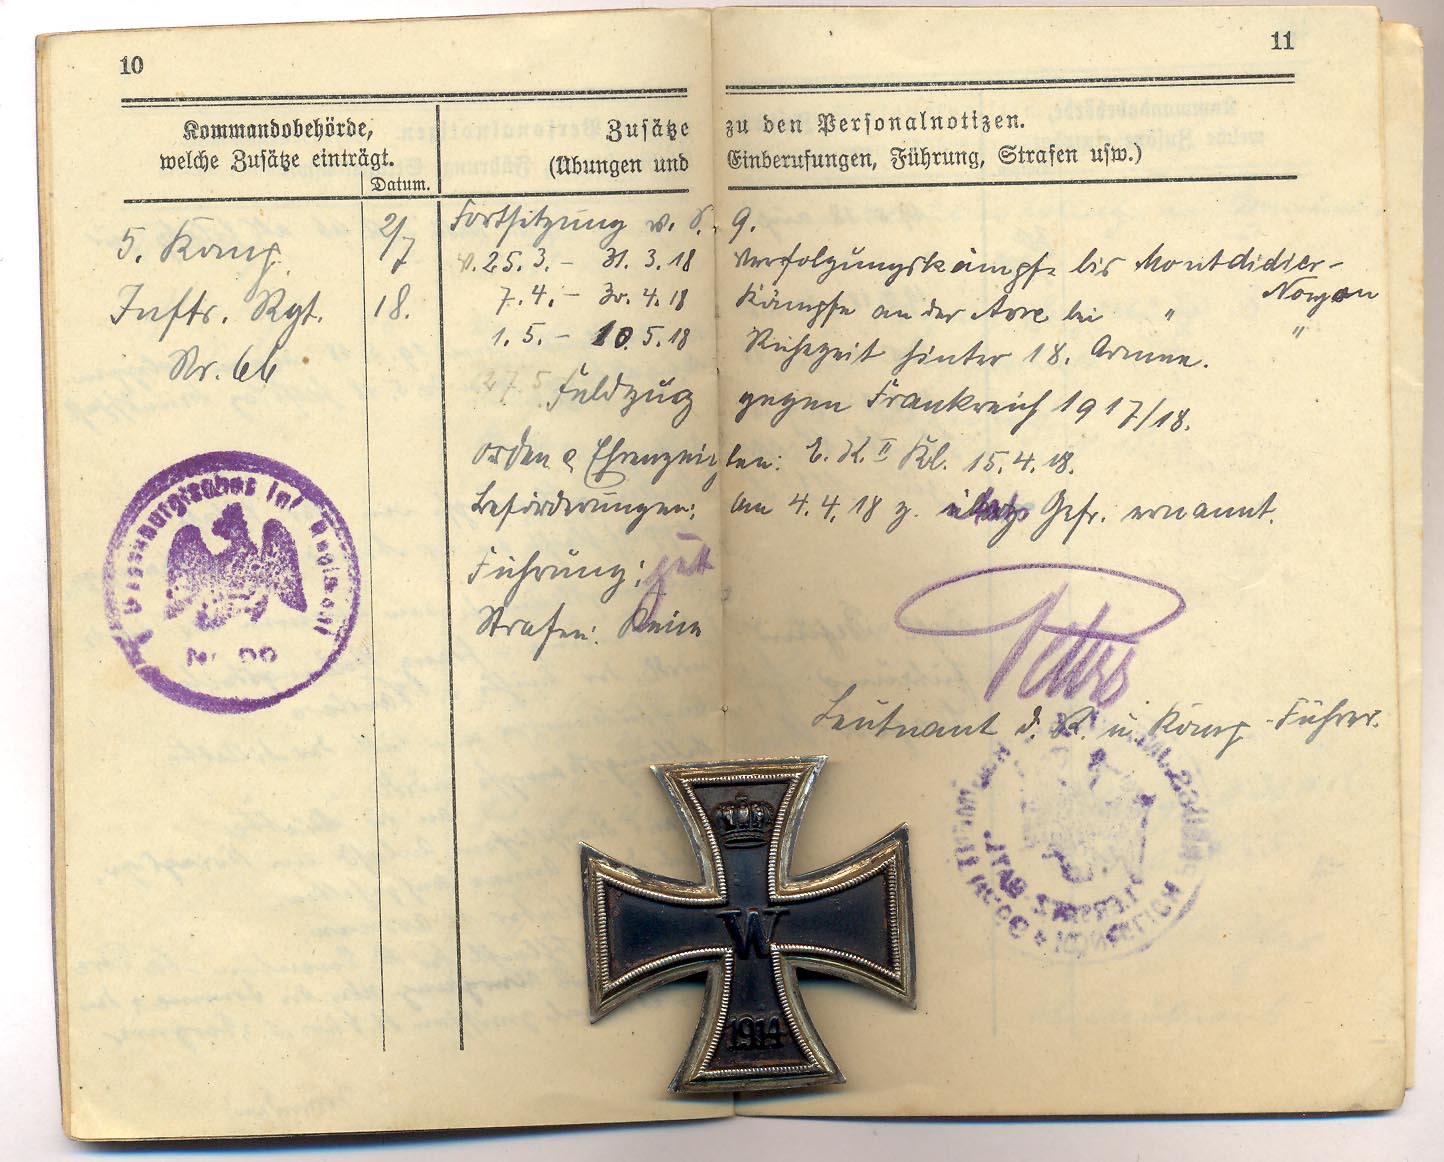 10
11
Kommandobehörde,
welche Zusätze einträgt.
Datum.
Zusätze zu den Personalnotizen.
(Übungen und Einberufungen, Führung, Strafen usw.)
5. Komp.
Inftr. Rgt.
Nr. 66
2/7
18.
Fortsetzung v. S. 9.
v. 25. 3. – 31. 3. 18 Verfolgungskämpfe bis Montdidier-
Noyon
7. 4. – 30. 4. 18 Kämpfe an der Avre bei " "
1. 5. – 10. 5. 18 Ruhezeit hinter 18. Armee.
27. 5. Feldzug gegen Frankreich 1917/18.
Orden & Ehrenzeichen: E. K. II Kl. 15. 4. 18.
Beförderungen: Am 4. 4. 18 z. Gefr. ernannt.
Führung: gut
Strafen: Keine
Leutnant d. R. u. Komp.-Führer.
Magdeburgisches Inf. Regiment
Nr. 66
W
1914